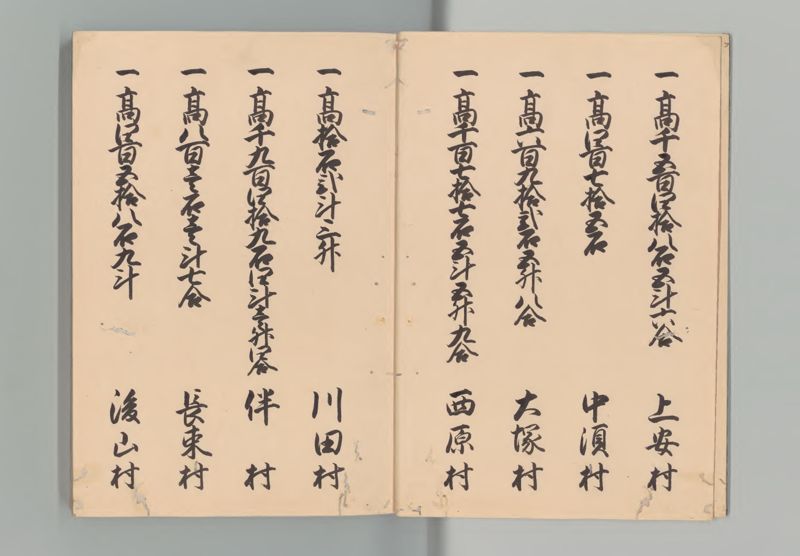 一 高千五百四拾八石五斗六合 上安村
一 高四百七拾五石 中須村
一 高六百九拾弐石五升八合 大塚村
一 高千百七拾七石五斗五升九合 西原村
一 高拾石弐斗三升 川田村
一 高千九百四拾九石四斗壱升四合 伴 村
一 高八百壱石壱斗七合 長束村
一 高四百五拾八石九斗 後山村